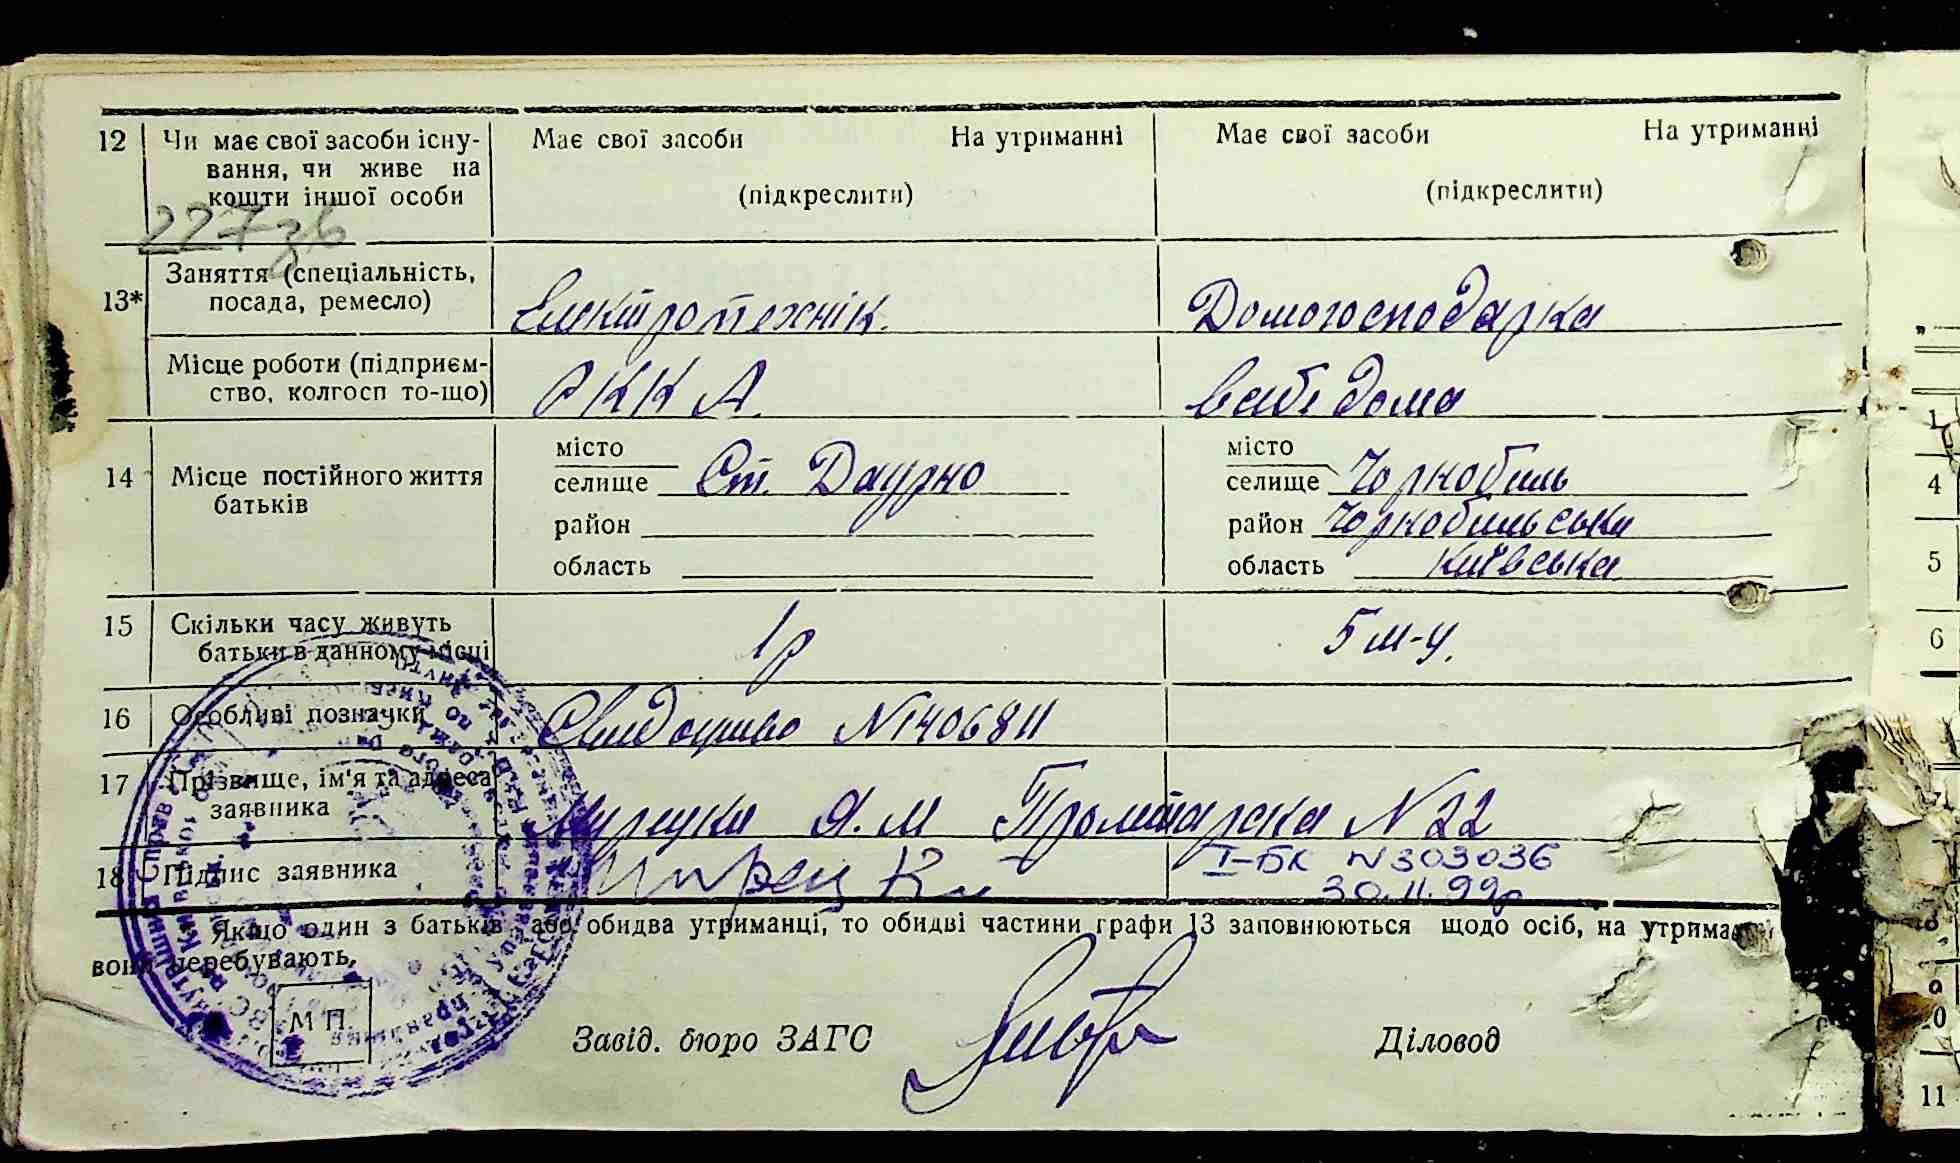 12 Чи має свої засоби існу- Має свої засоби На утриманні Має свої засоби На утриманні
вання, чи живе на
кошти іншої особи (підкреслити) (підкреслити)
227зв
Заняття (спеціальність,
13* посада, ремесло) Електротехнік. Домогосподарка
Місце роботи (підприєм-
ство, колгосп то-що) РККА. вебе дома
місто місто
14 Місце постійного життя селище Ст. Даурно селище Чорнобиль
батьків район район Чорнобильська
область область Київська
15 Скільки часу живуть 1р 5 м-у.
батьки в данному місці
16 Особливі позначки Свидоцтво №1406811
17 Прізвище, ім'я та адреса
заявника Я. М №22
18 Підпис заявника I-БК №303036
30.11.99р
Якщо один з батьків або обидва утриманці, то обидві частини графи 13 заповнюються щодо осіб, на
вони перебувають.
М П.
Завід. бюро ЗАГС Діловод
4
5
6
11